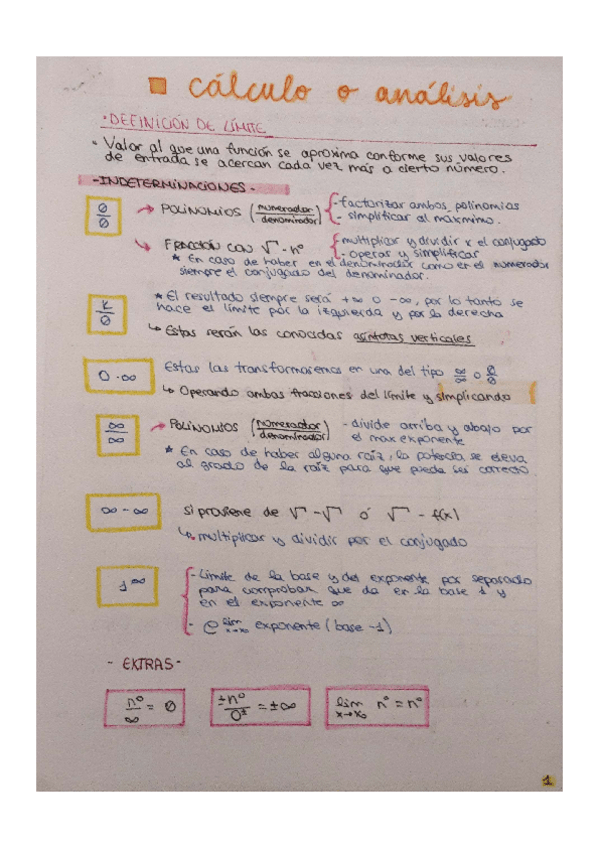 cálculo o análisis
• DEFINICIÓN DE LÍMITE
• Valor al que una función se aproxima conforme sus valores
de entrada se acercan cada vez más a cierto número.
- INDETERMINACIONES -
0/0 → POLINOMIOS (numerador/denominador) { - factorizar ambos polinomios
- simplificar al máximo.
↳ FRACCIÓN CON √ - nº { - multiplicar y dividir x el conjugado
- operas y simplificas
* En caso de haber en el denominador como en el numerador
siempre el conjugado del denominador.
K/0 * El resultado siempre será +∞ o -∞, por lo tanto se
hace el límite por la izquierda y por la derecha
↳ Estas serán las conocidas asíntotas verticales
0·∞ Estas las transformaremos en una del tipo ∞/∞ o 0/0
↳ Operando ambas fracciones del límite y simplicando
∞/∞ → POLINOMIOS (numerador/denominador) - divide arriba y abajo por
el max exponente
* En caso de haber alguna raíz, la potencia se eleva
al grado de la raíz para que pueda ser correcto
∞ - ∞ si proviene de √ - √ ó √ - f(x)
↳ multiplicar y dividir por el conjugado
1^∞ { - Límite de la base y del exponente por separado
para comprobar que da en la base 1 y
en el exponente ∞
- e^lim x→∞ exponente (base -1)
- EXTRAS -
nº/∞ = 0 ±nº/0± = ±∞ lim x→x₀ nº = nº
1